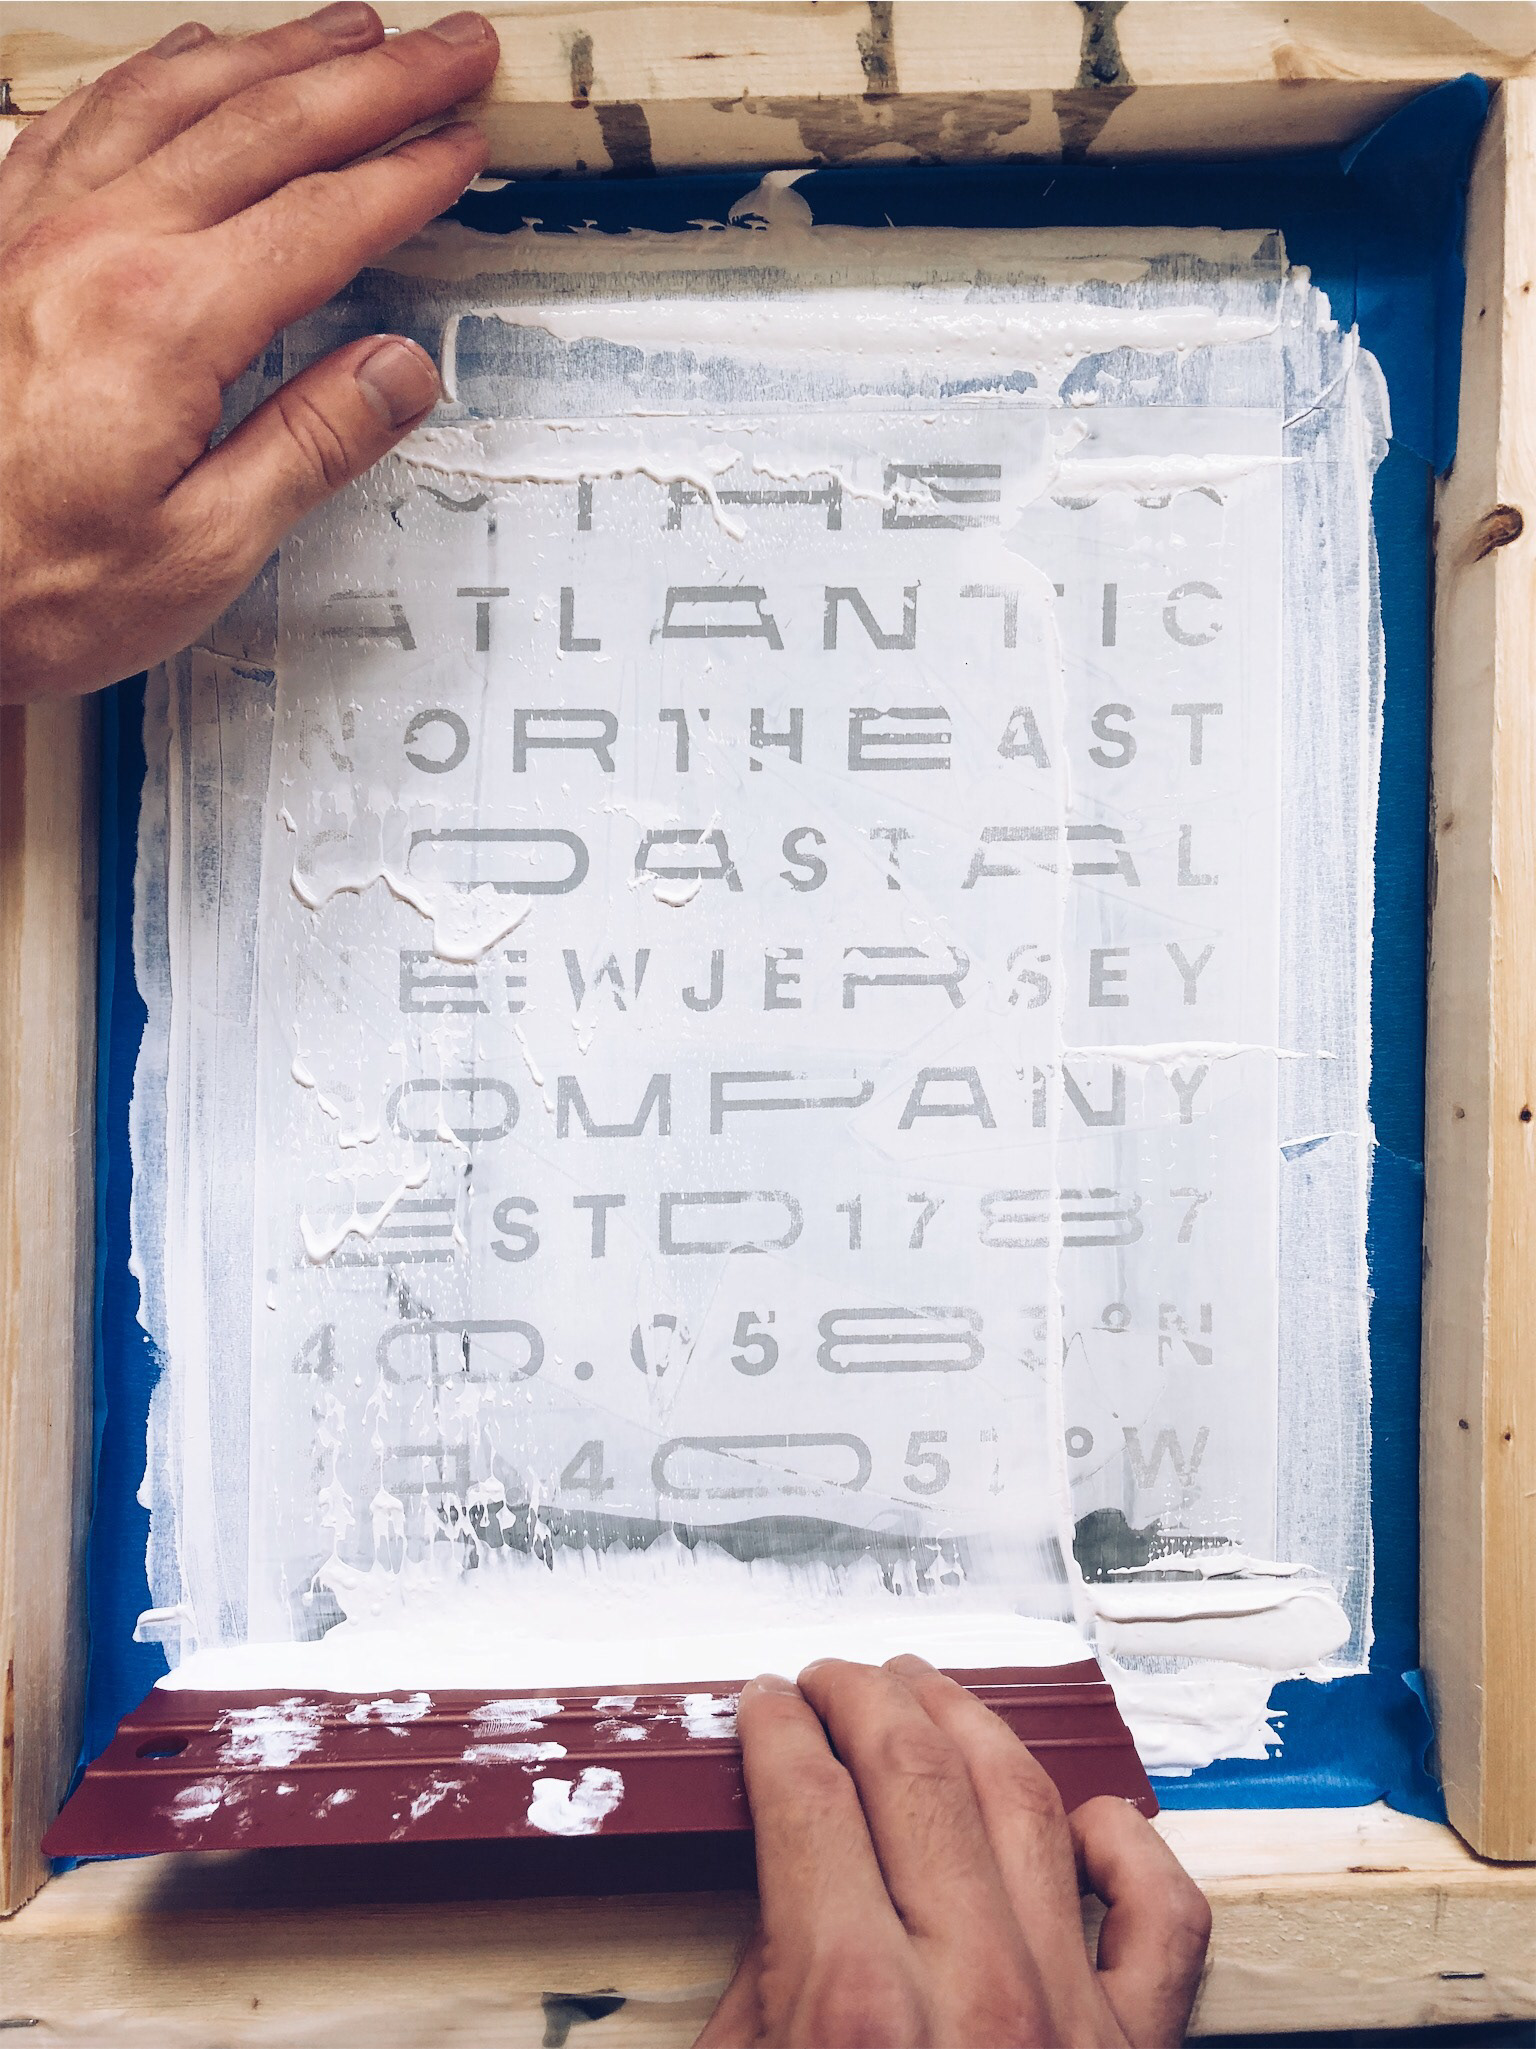 THE
ATLANTIC
NORTHEAST
COASTAL
NEW JERSEY
COMPANY
ESTD 1787
40.0583°N
74.4057°W